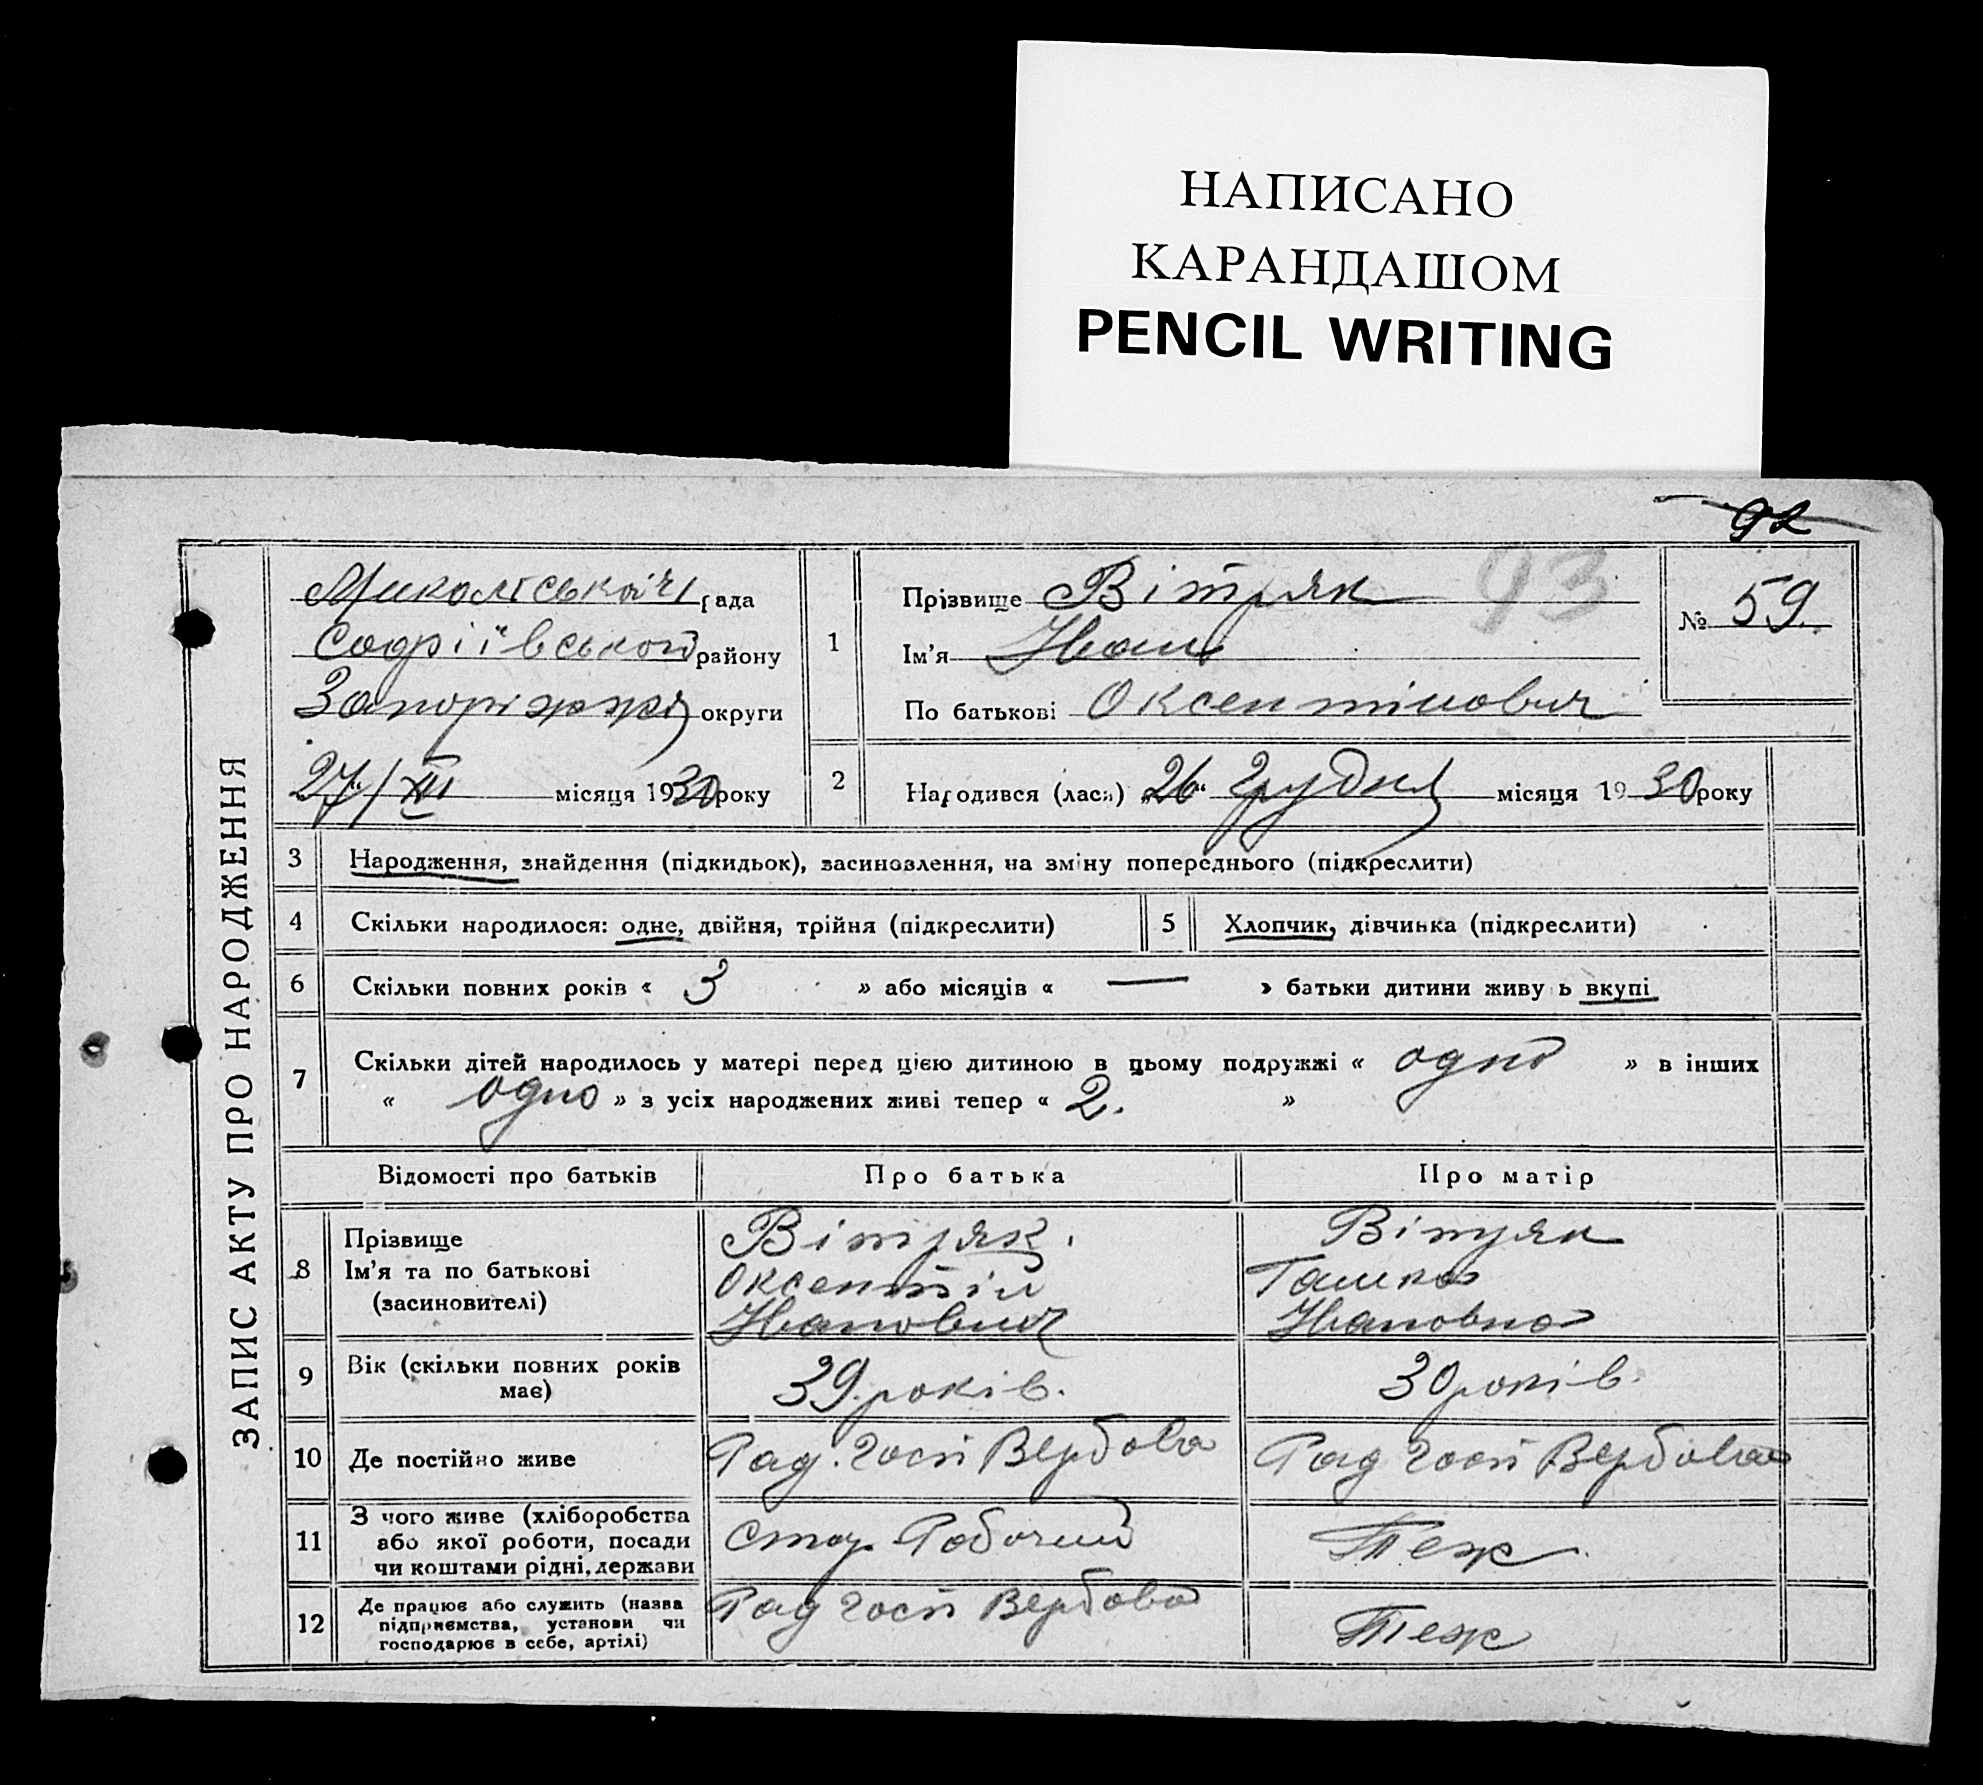 НАПИСАНО
КАРАНДАШОМ
PENCIL WRITING
92
93
ЗАПИС АКТУ ПРО НАРОДЖЕННЯ
рада
Софіївської району
Запоріжжя округи
27/XII місяця 1930 року
1
Прізвище Вітряк
Ім'я Иван
По батькові Оксентінович
№ 59.
2
Народився (лася) „26“ Грудня місяця 1930 року
3 Народження, знайдення (підкидьок), засиновлення, на зміну попереднього (підкреслити)
4 Скільки народилося: одне, двійня, трійня (підкреслити)
5 Хлопчик, дівчинка (підкреслити)
6 Скільки повних років « 3 » або місяців « — » батьки дитини живуть вкупі
7 Скільки дітей народилось у матері перед цією дитиною в цьому подружжі « одно » в інших
« одно » з усіх народжених живі тепер « 2. »
Відомості про батьків Про батька Про матір
8
Прізвище
Ім'я та по батькові
(засиновителі)
Вітряк.
Оксентій
Иванович
Вітряк
Ивановна
9
Вік (скільки повних років
має)
39 років.
30 років.
10 Де постійно живе
Рад. Госп Вербова
Рад Госп Вербова
11
З чого живе (хліборобства
або якої роботи, посади
чи коштами рідні, держави
Робочий
Теж
12
Де працює або служить (назва
підприємства, установи чи
господарює в себе, артілі)
Рад Госп Вербова
Теж